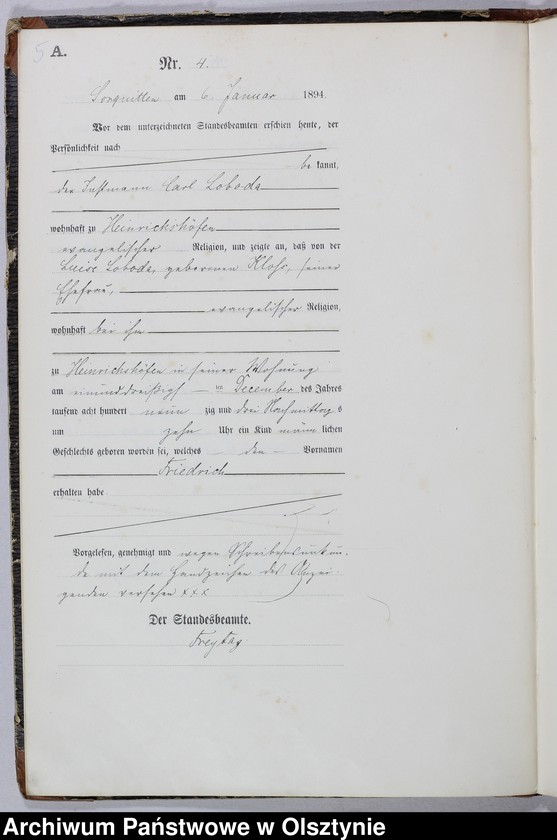 5 A.
Nr. 4.
Sorquitten am 6 Januar 1894
Vor dem unterzeichneten Standesbeamten erschien heute, der
Persönlichkeit nach
be kannt,
der Instmann Carl Loboda
wohnhaft zu Heinrichshöfen
evangelischer Religion, und zeigte an, daß von der
Luise Loboda, geborenen Klohs, seiner
Ehefrau,
evangelischer Religion,
wohnhaft bei ihm
zu Heinrichshöfen in seiner Wohnung
am einunddreißigst en December des Jahres
tausend acht hundert neun zig und drei Nachmittag s
um zehn Uhr ein Kind männ lichen
Geschlechts geboren worden sei, welches den Vornamen
Friedrich
erhalten habe
Vorgelesen, genehmigt und wegen Schreibensunkun-
de mit dem Handzeichen des Anzei-
genden versehen xxx
Der Standesbeamte.
Freytag
Archiwum Państwowe w Olsztynie